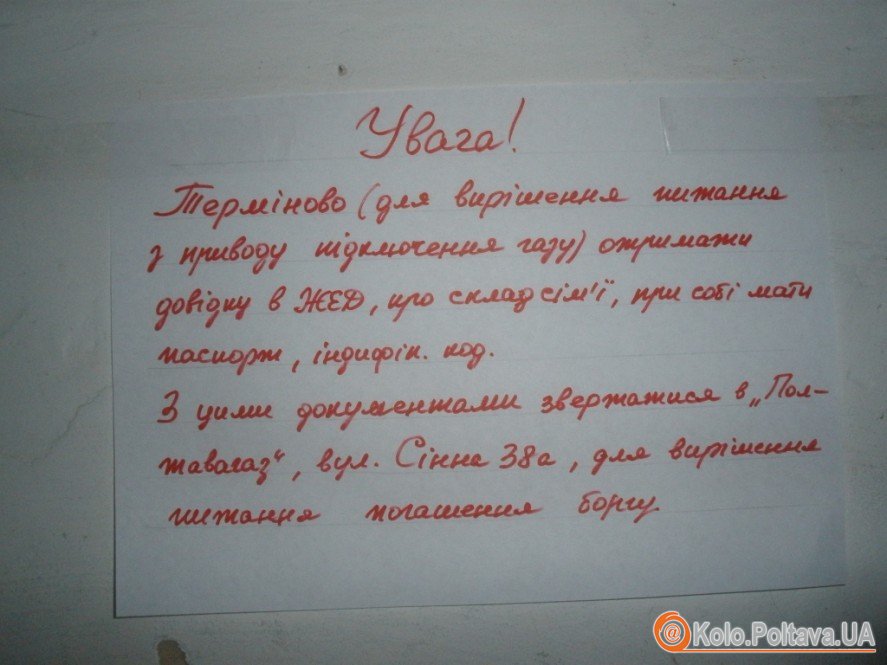 Увага!
Терміново (для вирішення питання
з приводу підключення газу) отримати
довідку в ЖЕД, про склад сім'ї, при собі мати
паспорт, індифік. код.
З цими документами звертатися в „Пол-
тавагаз", вул. Сінна 38а, для вирішення
питання погашення боргу.
@Kolo.Poltava.UA